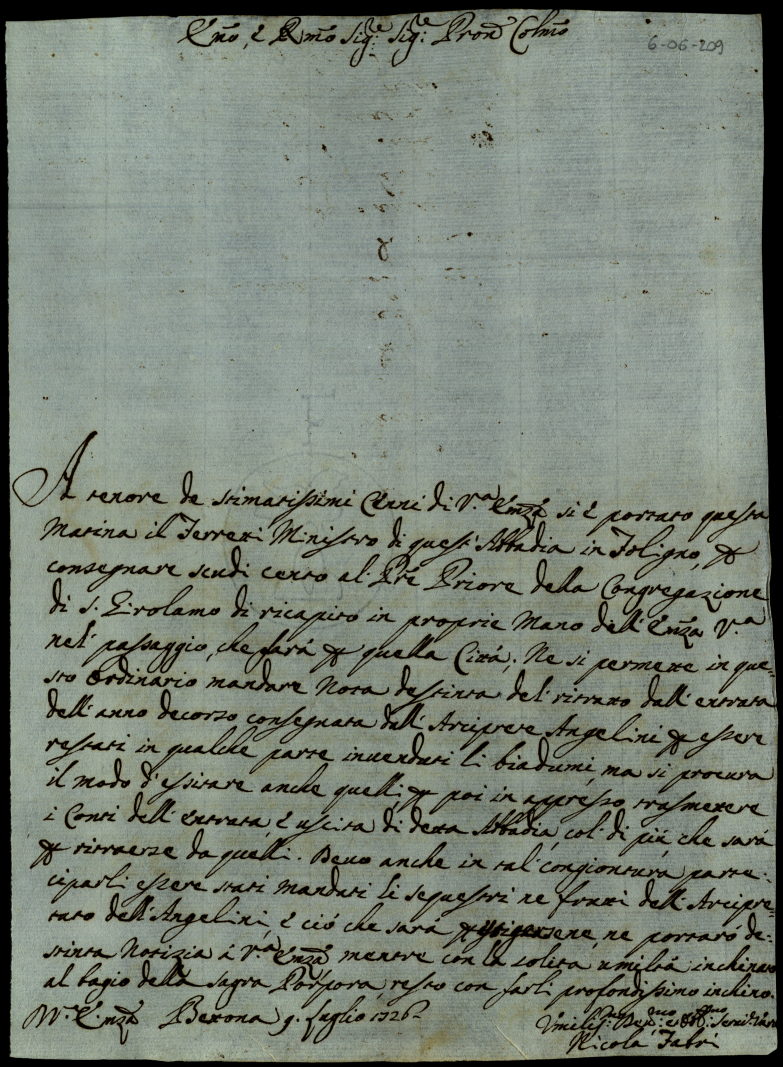 Emo, e Rmo Sig:re Sig:re Pron Colmo
6-06-209
A tenore de stimatissimi Cenni di V.a Emza si è portato questa
Matina il Ferreri Ministro di quest' Abbadia in Foligno, p
consegnare scudi cento al Pre Priore della Congregazione
di S. Girolamo di ricapito in proprie Mano dell' Emza V.a
nel passaggio, che farà p quella Città; Ne si permette in que=
sto Ordinario mandare Nota destinta del ritratto dall' entrata
dell' anno decorso consegnata dall' Arciprete Angelini p essere
restati in qualche parte invenduti li biadumi, ma si procura
il modo d' essitare anche quelli, p poi in appresso trasmettere
i Conti dell' entrata, e uscita di detta Abbadia, col di più, che sarà
p ritraerse da quelli. Devo anche in tal congiontura parte=
ciparli essere stati mandati li sequestri ne frutti dell' Arcipre=
tato dell' Angelini, e ciò che sarà p ne portarò de=
stinta Notizia à V.a Emza mentre con la solita umiltà inchinato
al bagio della Sagra Porpora, resto con farli profondissimo inchino.
Di V.a Emza Bettona 9. Luglio 1726
Umiliss:mo Dev:mo e Obl:mo Servid:
Nicola Fabri